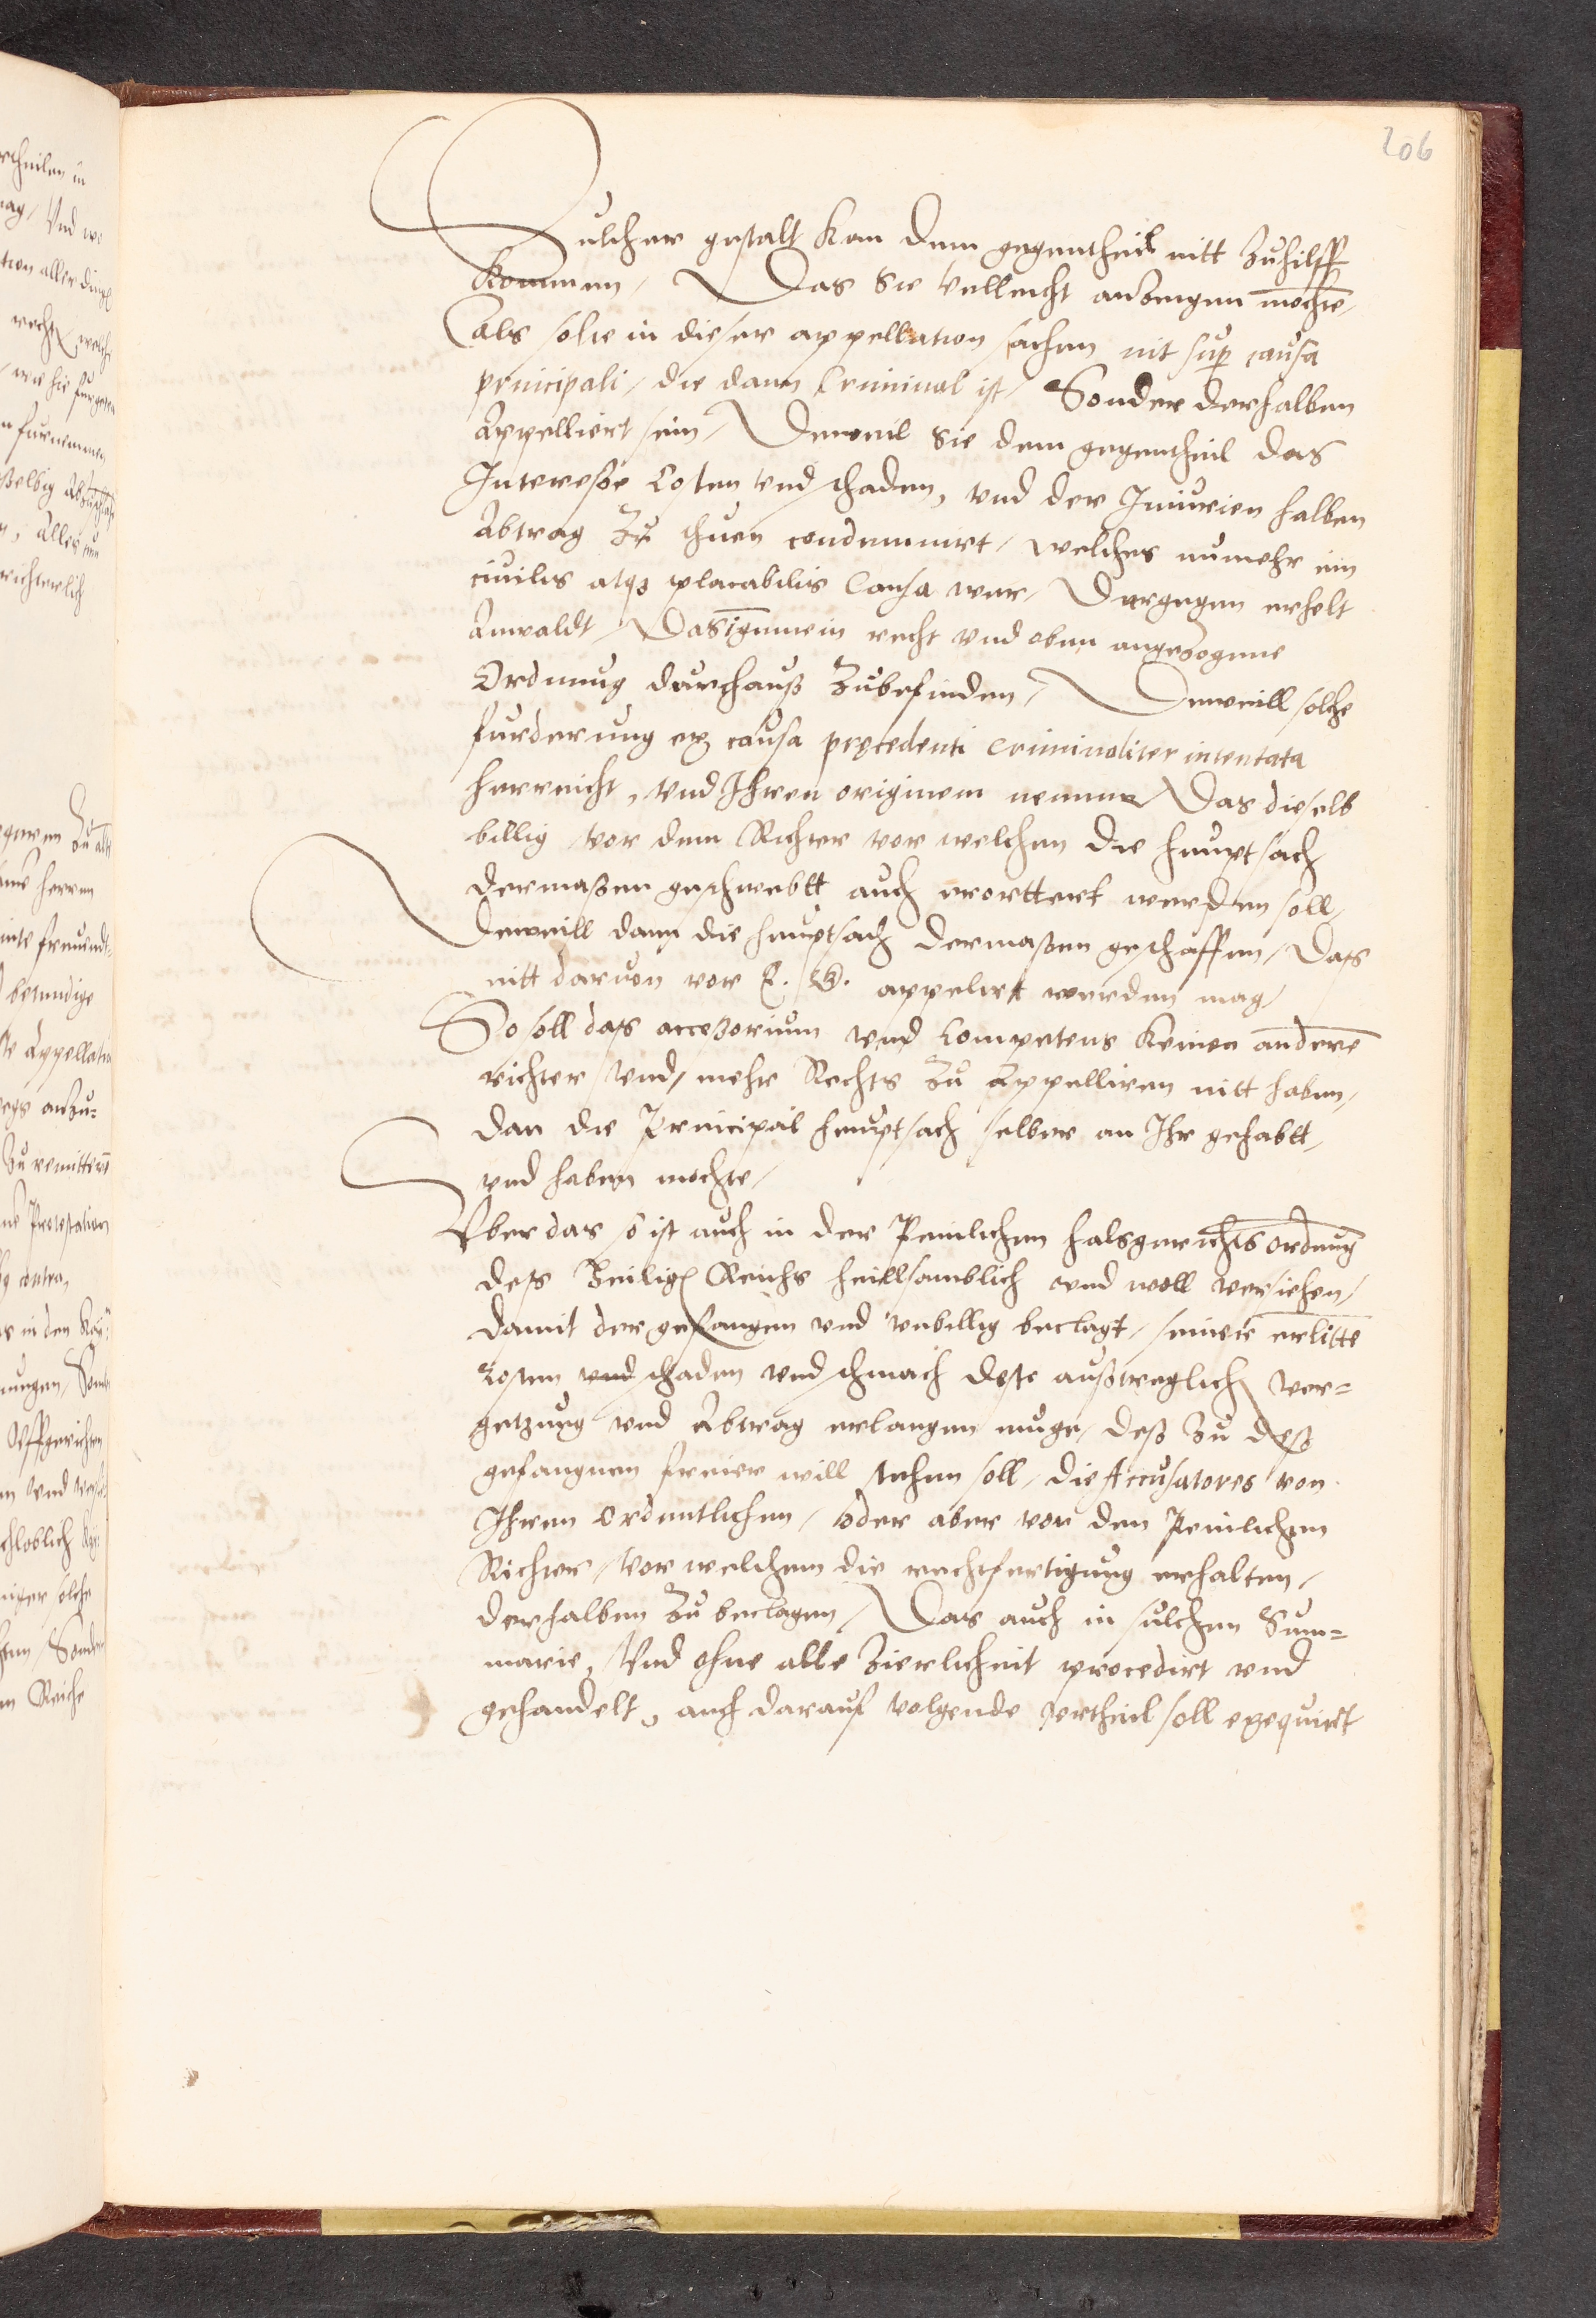 206
Sulcher gestalt kan dem gegentheil nitt zuhilff
kommen, Das sie velleicht anzeigen mochte,
Als solte in dieser appellation sachen nit sup causa
principali, die dann Criminal ist, Sonder derhalben
Appelliert sein, Dweil sie dem gegentheil das
Interesse Costen vnd schaden, vnd der Iniurien halben
Abtrag zu thuen condemnirt, welches numehr ein
ciuilis atqz placabilis Causa wer, Dargegen erhelt
Anwaldt, Das gemein recht vnd oben angezogene
Ordnung durchauß zubefinden, Dweill solche
furderung ex causa precedenti criminaliter intentata
herreicht, vnd Ihren originem nemme, Das dieselb
billig vor dem Richter vor welchen die heuptsach
dermaßen geschwebtt auch erorttert werden soll,
Dweill dann die heuptsach dermaßen geschaffen, Das
nitt daruon vor E. G. appelirt werden mag,
So soll das accessorium vnd Competens keinen anderē
richter vnd mehr Rechts zu Appelliren nitt haben,
dan die Principal heuptsach selber an Ihr gehabtt,
vnd haben mochte,
Vber das so ist auch in der Peinlichen halsgerichts ordnung
deß Heilig Reichs heillsamblich vnd woll versehen,
damit der gefangen vnd vnbillig beclagt, seinere erlitte
Costen vnd schaden vnd schmach deste außtreglich ver=
getzung vnd Abtrag erlangen muge, deß zu deß
gefangnen freier will stehen soll, die Accusatores von
Ihren Ordentlichen, oder aber vor den Peinlichen
Richter, vor welchem die rechtfertigung erhalten,
derhalben zu beclagen, Das auch in sulchen Sum=
marie, Vnd ohne alle Zierlicheit procedirt vnd
gehandelt, auch darauf volgende vrtheil soll exequirt